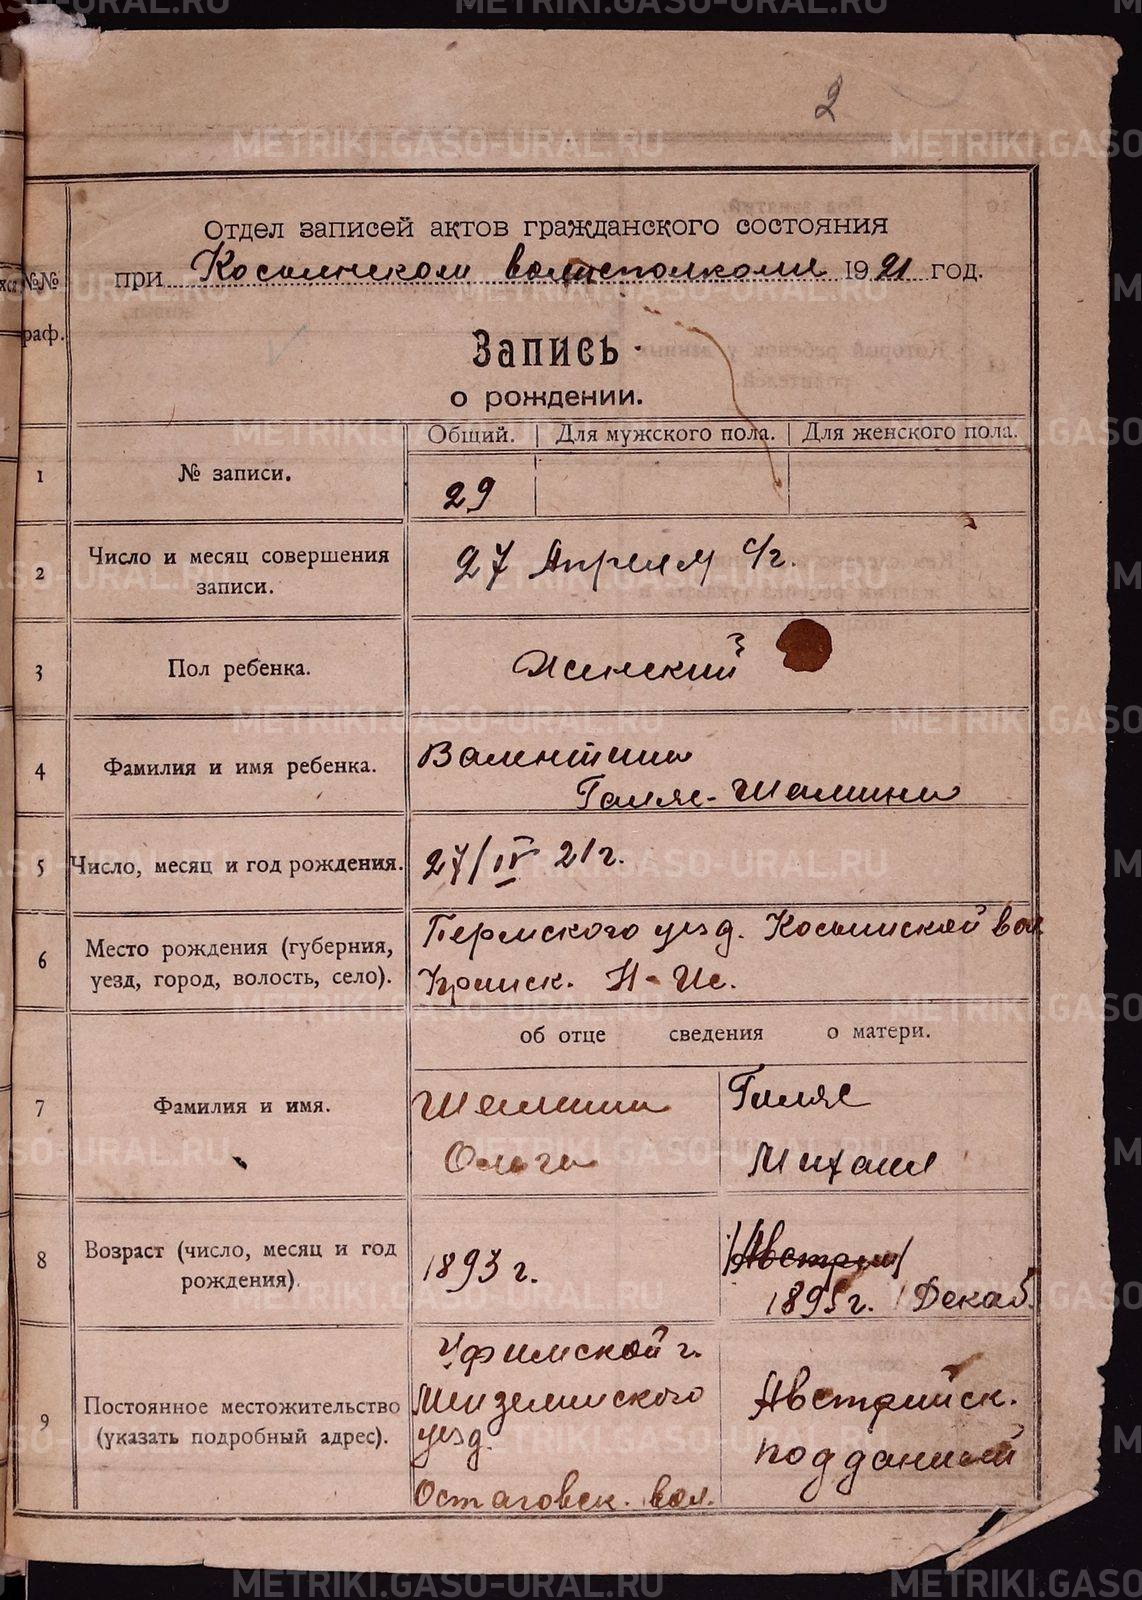 2
Отдел записей актов гражданского состояния
при Косьинском волисполкоме 1921 год.
№№
раф.
Запись
о рождении.
Общий. Для мужского пола. Для женского пола.
1 № записи. 29
2 Число и месяц совершения записи. 27 Апреля с/г.
3 Пол ребенка. Женский
4 Фамилия и имя ребенка. Валентина
Галяс-Шамина
5 Число, месяц и год рождения. 27/IV 21 г.
6 Место рождения (губерния, уезд, город, волость, село). Пермского уезд. Косьинской вол.
Крайск. Н-Ис.
об отце сведения о матери.
7 Фамилия и имя. Шамина Галяс
Ольга Михаил
8 Возраст (число, месяц и год рождения). 1893 г. /Австрии/
1895 г. / Декаб.
9 Постоянное местожительство (указать подробный адрес). Уфимской г.
Мензелинского
уезд.
вол.
Австрийск.
подданный
METRIKI.GASO-URAL.RU